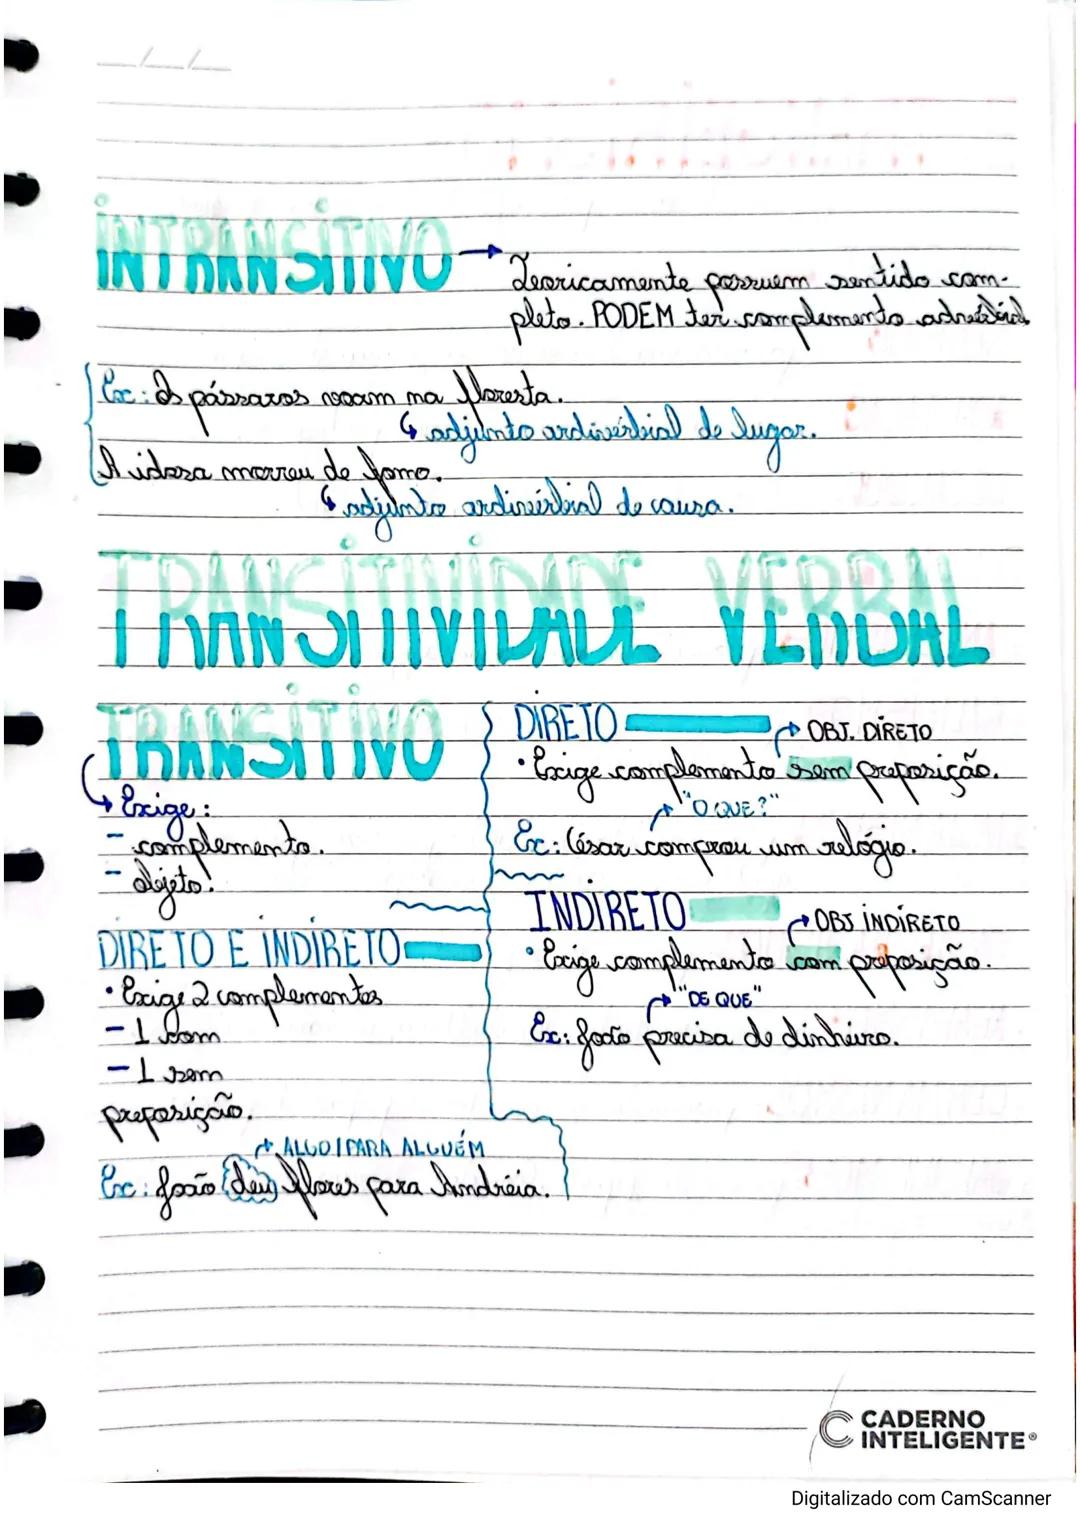 INTRANSITIVO →
Teoricamente possuem sentido com-
pleto. PODEM ter complemento adverbial
Ex: Os pássaros voam na floresta.
↳ adjunto ardivérbial de lugar.
A idosa morreu de fome.
↳ adjunto ardivérbial de causa.
TRANSITIVIDADE VERBAL
TRANSITIVO
↳ Exige:
- complemento.
- objeto!
DIRETO
→ OBJ. DIRETO
• Exige complemento sem preposição.
→ "O QUE?"
Ex: César comprou um relógio.
INDIRETO
→ OBJ INDIRETO
• Exige complemento com preposição.
→ "DE QUE"
Ex: João precisa de dinheiro.
DIRETO E INDIRETO
• Exige 2 complementos
- 1 com
- 1 sem
preposição.
→ ALGO / PARA ALGUÉM
Ex: João deu flores para Andréia.
CADERNO
INTELIGENTE®
Digitalizado com CamScanner